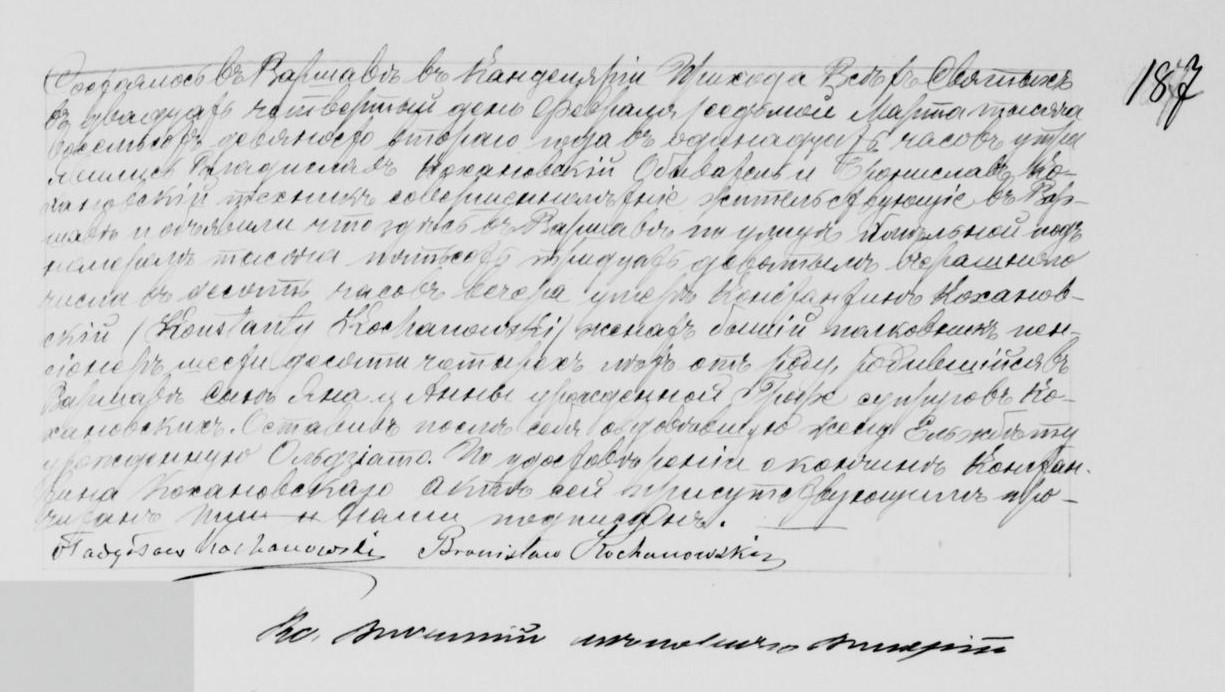 187
Состоялось въ Варшавѣ въ Канцеляріи Прихода Всѣхъ Святыхъ
въ двадцать четвертый день Февраля, седьмой Марта тысяча
восемьсотъ девяносто втораго года въ одинадцать часовъ утра
явились Владиславъ Кохановскій Обыватель и Брониславъ Ко-
хановскій техникъ совершеннолѣтніе жительствующіе въ Вар-
шавѣ и объявили что здѣсь въ Варшавѣ по улицѣ подъ
номеромъ тысяча пятьсотъ тридцать девятымъ вчерашняго
числа въ десять часовъ вечера умеръ Константинъ Коханов-
скій /Konstanty Kochanowski/ женатъ бывшій полковникъ пен-
сіонеръ шести десяти четырехъ лѣтъ отъ роду, родившійся въ
Варшавѣ сынъ Яна и Анны урожденной супруговъ Ко-
хановскихъ. Оставивъ послѣ себя овдовѣвшую жену Ельжбѣту
урожденную. По удостовѣреніи о кончинѣ Констан-
тина Кохановскаго актъ сей присутствующимъ про-
читанъ ими и нами подписанъ.
Władysław Kochanowski Bronisław Kochanowski
Кс.